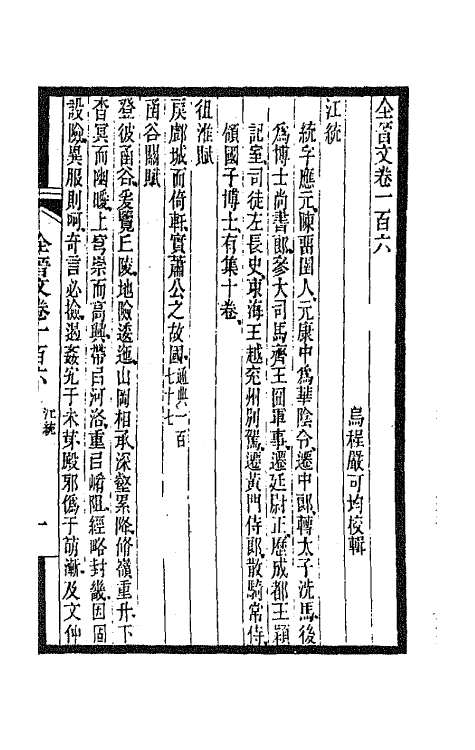 全晉文卷一百六
烏程嚴可均校輯
江統
統字應元陳畱圉人元康中爲華陰令遷中郎轉太子洗馬後
爲博士尚書郎參大司馬齊王冏軍事遷廷尉正歷成都王穎
記室司徒左長史東海王越兖州別駕遷黃門侍郎散騎常侍
領國子博士有集十卷
徂淮賦
戾酇城而倚軒實蕭公之故國通典一百
七十七
函谷關賦
登彼函谷爰覽丘陵地險逶迤山岡相承深壑累降脩嶺重升下
杳冥而幽曖上穹崇而高興帶㠯河洛重㠯崤阻經略封畿因固
設險異服則呵奇言必撿遏姦宄于未芽殿邪僞于萌漸及文仲
全晉文卷一百六
江統
一